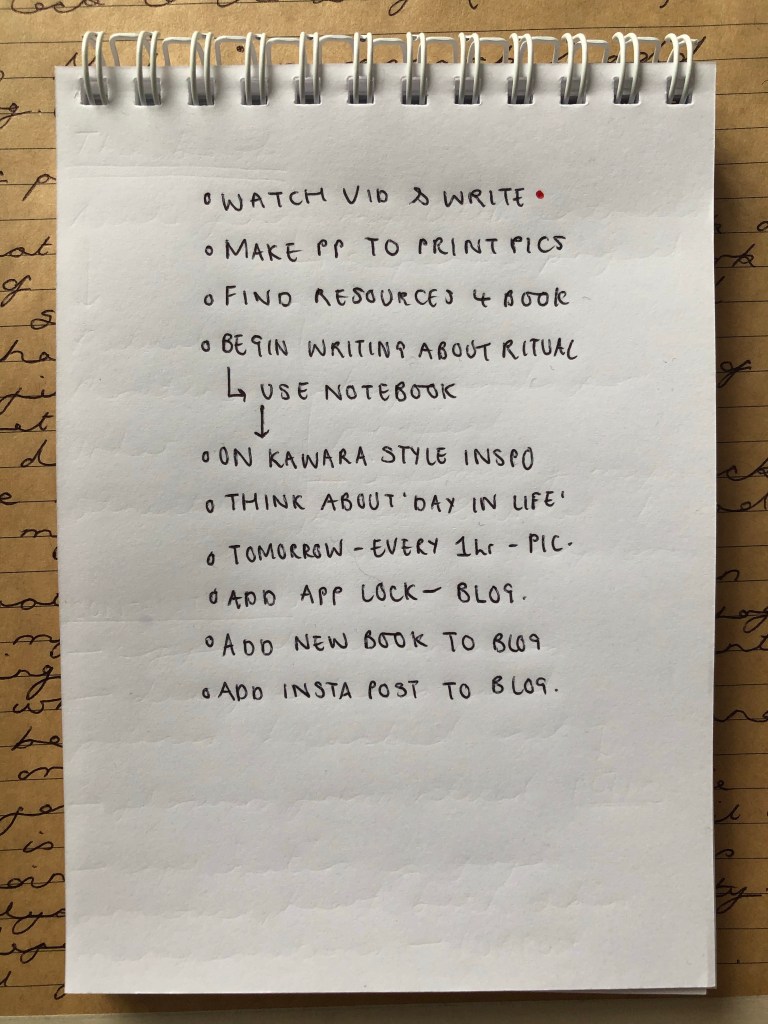 WATCH VID & WRITE
MAKE PP TO PRINT PICS
FIND RESOURCES 4 BOOK
BEGIN WRITING ABOUT RITUAL
↳ USE NOTEBOOK
↓
ON KAWARA STYLE INSPO
THINK ABOUT 'DAY IN LIFE'
TOMORROW - EVERY 1hr - PIC.
ADD APP LOCK - BLOG.
ADD NEW BOOK TO BLOG
ADD INSTA POST TO BLOG.